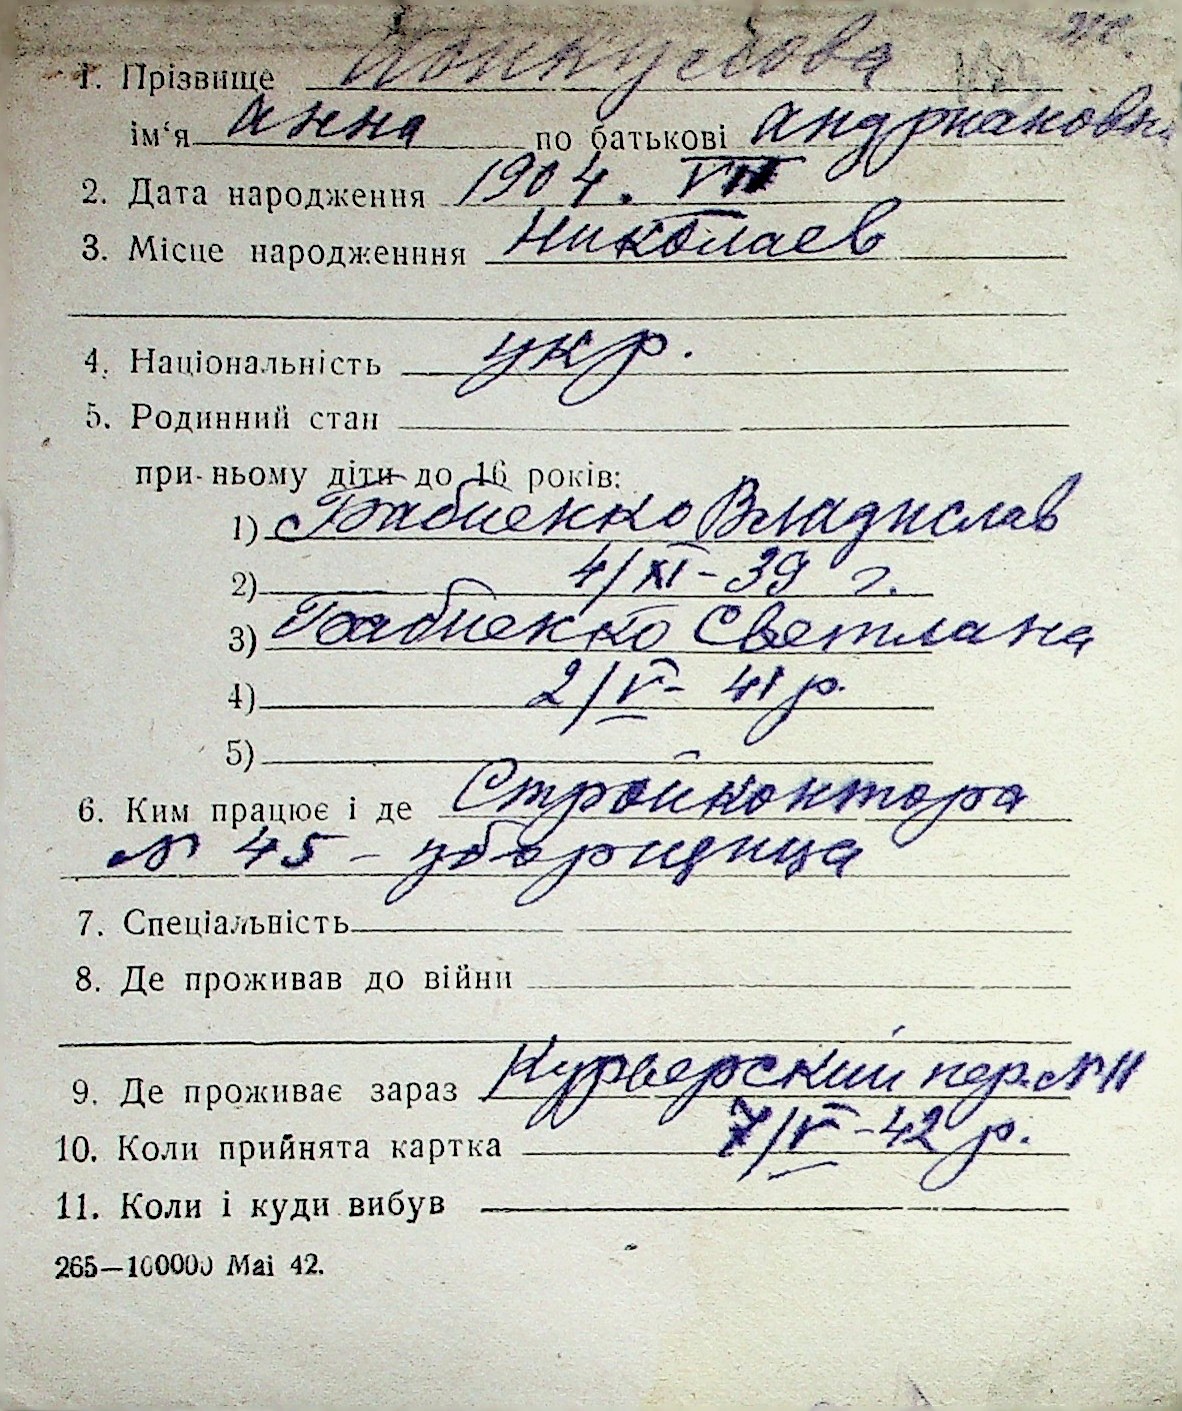 1. Прізвище
ім‘я Анна по батькові Андриановна
2. Дата народження 1904. VII
3. Місце народженння Николаев
4. Національність укр.
5. Родинний стан
при-ньому діти до 16 років:
1) Бабиенко Владислав
2) 4/XI-39 г.
3) Бабиенко Светлана
4) 2/V- 41 р.
5)
6. Ким працює і де Стройконтора
№ 45 - уборщица
7. Спеціальність
8. Де проживав до війни
9. Де проживає зараз Курьерский пер. № 11
10. Коли прийнята картка 7/V-42 р.
11. Коли і куди вибув
265—100000 Mai 42.